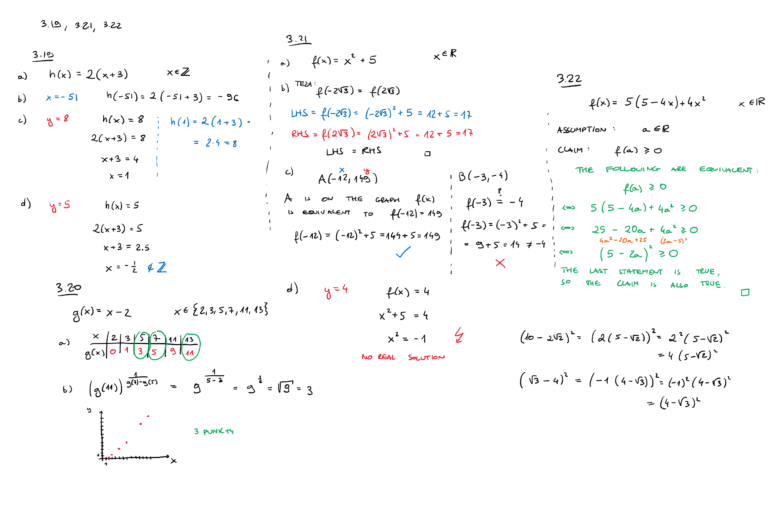 3.19, 3.21, 3.22
3.19
a) h(x) = 2(x+3) x∈ℤ
b) x=-51 h(-51) = 2(-51+3) = -96
c) y=8 h(x) = 8
2(x+3) = 8
x+3 = 4
x = 1
h(1) = 2(1+3) =
= 2·4 = 8
d) y=5 h(x) = 5
2(x+3) = 5
x+3 = 2.5
x = -1/2 ∉ ℤ
3.20
g(x) = x-2 x∈{2,3,5,7,11,13}
a) x | 2 | 3 | 5 | 7 | 11 | 13
g(x) | 0 | 1 | 3 | 5 | 9 | 11
b) (g(11))^(1/(g(7)-g(5))) = 9^(1/(5-3)) = 9^(1/2) = √9 = 3
y
1
1
x
3 PUNKTY
3.21
a) f(x) = x² + 5 x∈ℝ
b) TEZA: f(-2√3) = f(2√3)
LHS = f(-2√3) = (-2√3)² + 5 = 12 + 5 = 17
RHS = f(2√3) = (2√3)² + 5 = 12 + 5 = 17
LHS = RHS □
c) x y
A(-12, 149)
A IS ON THE GRAPH f(x)
IS EQUIVALENT TO f(-12) = 149
f(-12) = (-12)² + 5 = 144 + 5 = 149
✓
B(-3, -4)
?
f(-3) = -4
f(-3) = (-3)² + 5 =
= 9 + 5 = 14 ≠ -4
×
d) y=4 f(x) = 4
x² + 5 = 4
x² = -1
NO REAL SOLUTION
3.22
f(x) = 5(5-4x) + 4x² x∈ℝ
ASSUMPTION: a∈ℝ
CLAIM: f(a) ≥ 0
THE FOLLOWING ARE EQUIVALENT:
f(a) ≥ 0
⇔ 5(5-4a) + 4a² ≥ 0
⇔ 25 - 20a + 4a² ≥ 0
4a²-20a+25 (2a-5)²
⇔ (5-2a)² ≥ 0
THE LAST STATEMENT IS TRUE,
SO THE CLAIM IS ALSO TRUE. □
(10-2√2)² = (2(5-√2))² = 2²(5-√2)²
= 4(5-√2)²
(√3-4)² = (-1(4-√3))² = (-1)²(4-√3)²
= (4-√3)²